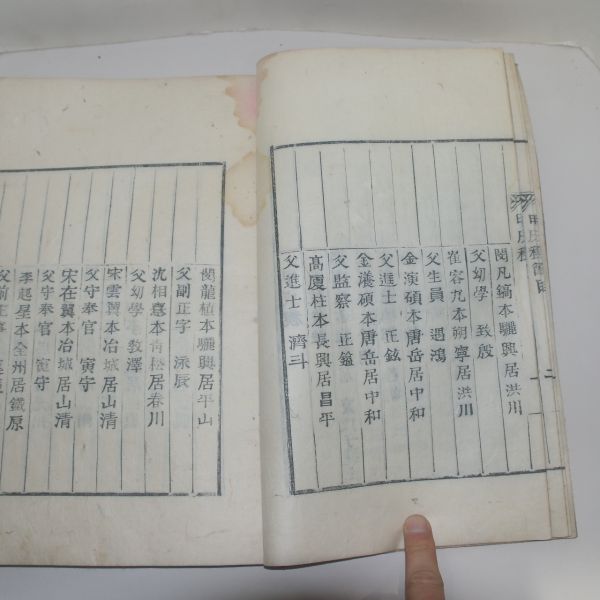 閔凡鎬本驪興居洪川
父幼學 致殷
崔容九本朔寧居洪川
父生員 遇鴻
金演碩本唐岳居中和
父進士 正鉉
金瀁碩本唐岳居中和
父監察 正鎰
高廈柱本長興居昌平
父進士 濟斗
閔龍植本驪興居平山
父副正字 泳辰
沈相熹本靑松居春川
父幼學 敎澤
宋雲翼本冶城居山清
父守奉官 寅守
宋在翼本冶城居山清
父守奉官 寅守
李起星本全州居鐵原